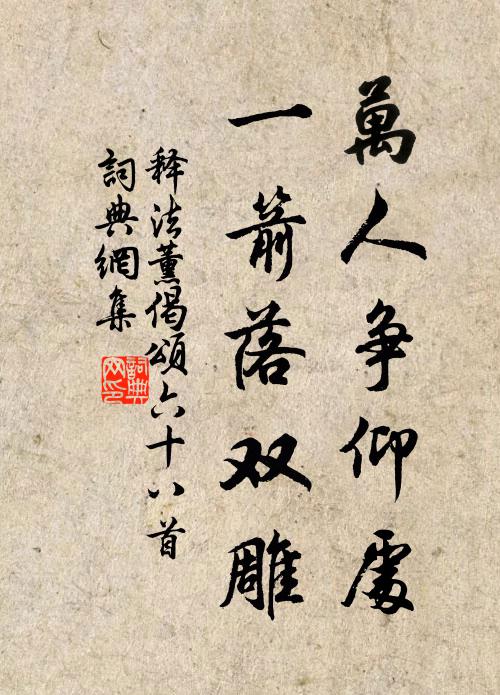 萬人争仰處
一箭落双雕
释法薰偈頌六十八首
詞典網集
詞典網印